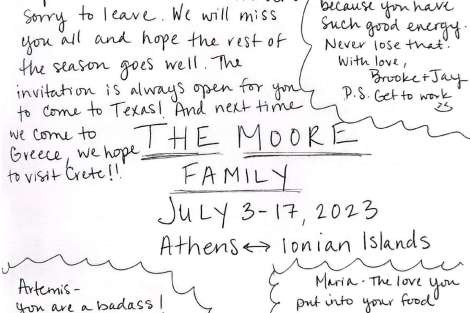 Sorry to leave. We will miss
you all and hope the rest of
the season goes well. The
invitation is always open for you
to come to Texas! And next time
we come to
Greece, we hope
to visit Crete!!
because you have
such good energy.
Never lose that.
With love,
Brooke + Jay
P.S. Get to work
THE MOORE
FAMILY
JULY 3-17, 2023
Athens ↔ Ionian Islands
Artemis -
You are a badass!
Maria - The love you
put into your food